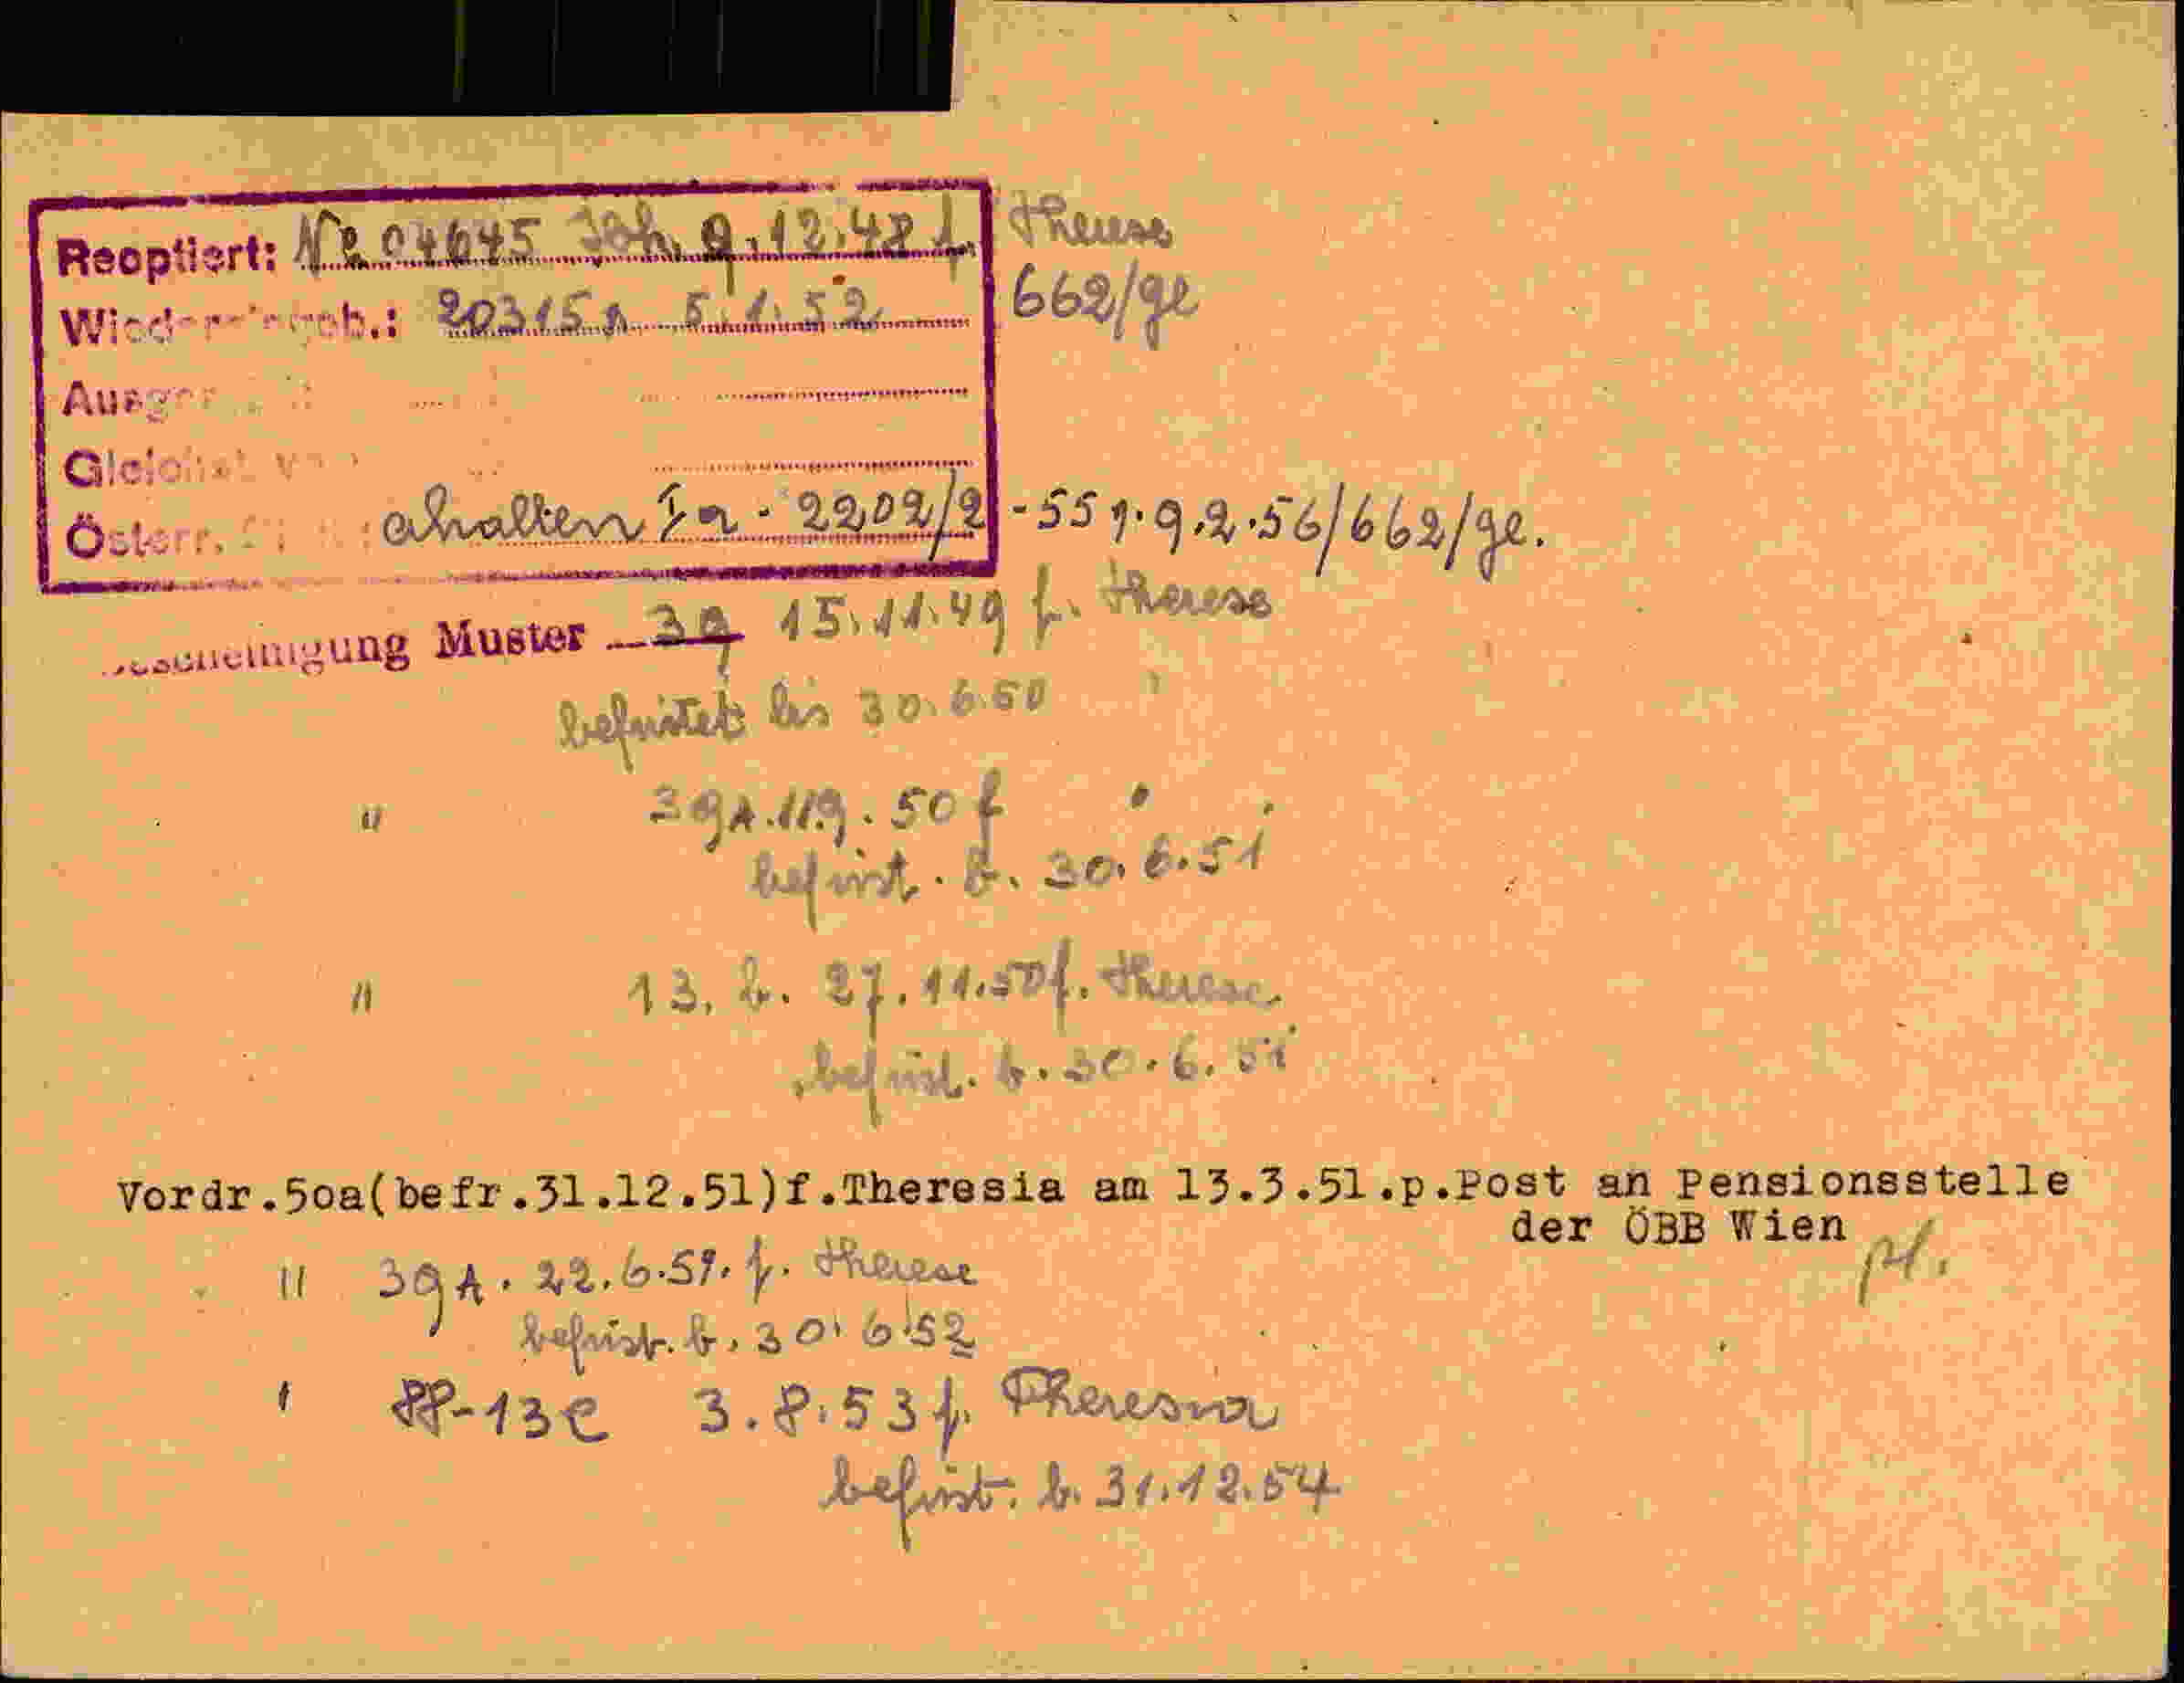 Reoptiert: No 04645 Joh. 9.12.48 f. Therese
Wiedereingeb.: 20315 5.1.52 662/ge
Österr. ahalten Ia - 2202/2 - 551. 9.2.56/662/ge.
Bescheinigung Muster 39 15.11.49 f. Therese
befristet bis 30.6.50 "
" 39A. 11.9.50 f "
befrist. b. 30.6.51
" 13. b. 27.11.50 f. Therese
befrist. b. 30.6.51
Vordr.5oa(befr.31.12.51)f.Theresia am 13.3.51.p.Post an Pensionsstelle
der ÖBB Wien
" 39A. 22.6.51. f. Therese
befrist. b. 30.6.52
" 13e 3.8.53 f. Theresia
befrist. b. 31.12.54